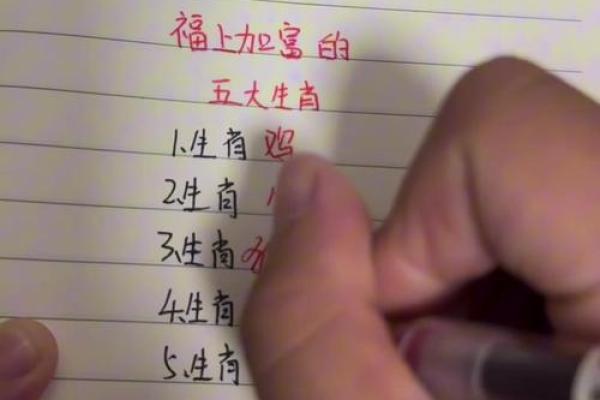 福上加富的
五大生肖
1.生肖 鸡
2.生肖
3.生肖
4.生肖
5.生肖